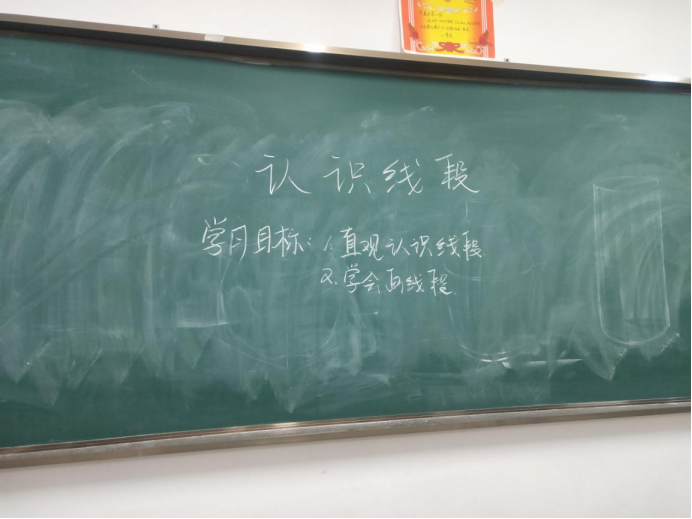 认识线段
学习目标:1.直观认识线段
2.学会画线段